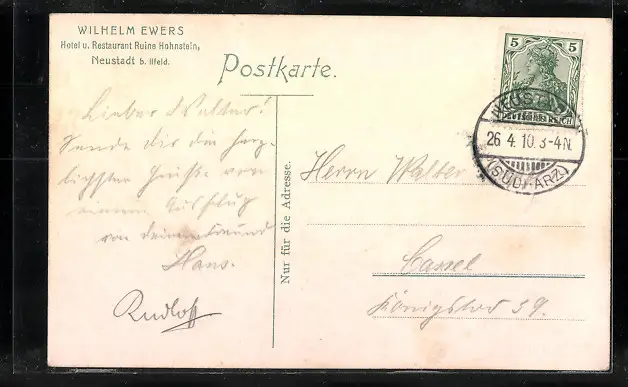 WILHELM EWERS
Hotel u. Restaurant Ruine Hohnstein,
Neustadt b. Ilfeld.
Postkarte.
5 5
DEUTSCHES REICH
NEUSTADT
26. 4. 10. 3-4N.
(SÜDHARZ)
Lieber Walter!
Sende dir die herz-
lichsten Grüße von
einem Ausflug
von deinem Freund
Hans.
Rudloff
Nur für die Adresse.
Herrn Walter
Cassel
Königstor 39.